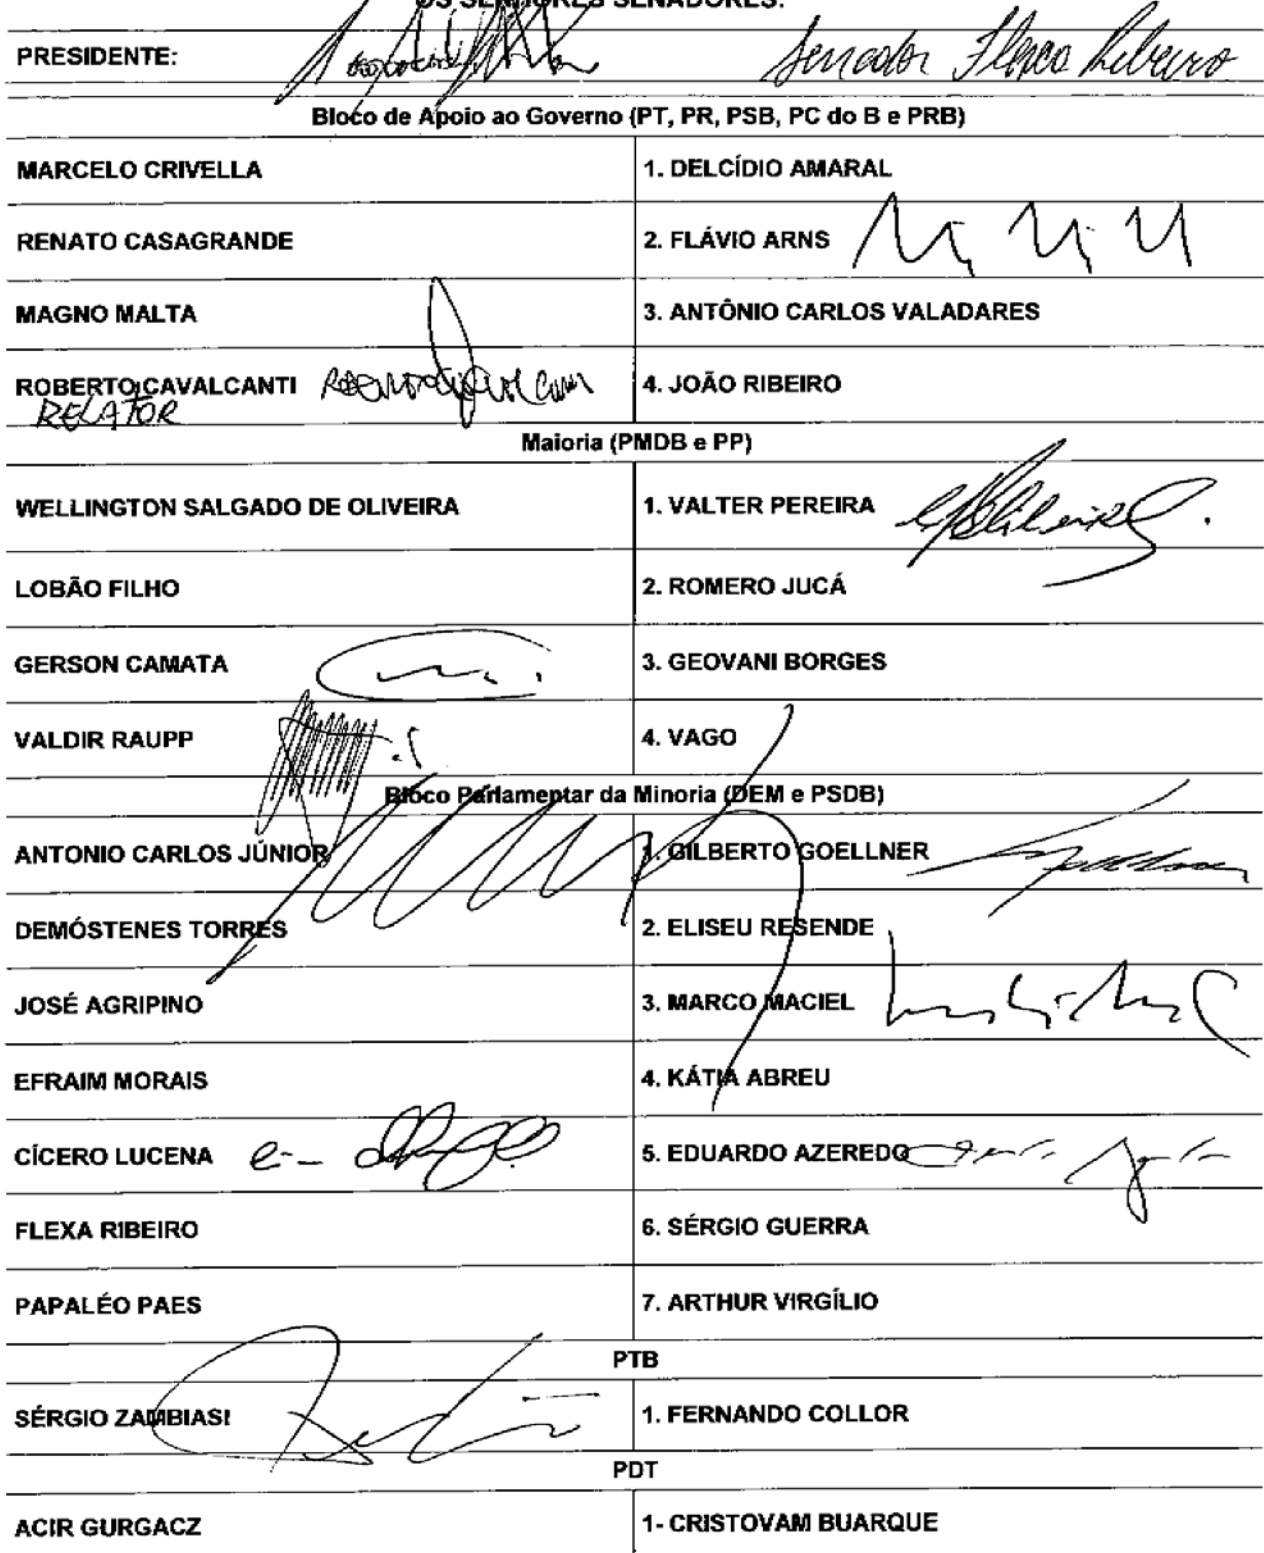 OS SENHORES SENADORES:
PRESIDENTE: Senador Flexa Ribeiro
Bloco de Apoio ao Governo (PT, PR, PSB, PC do B e PRB)
MARCELO CRIVELLA 1. DELCÍDIO AMARAL
RENATO CASAGRANDE 2. FLÁVIO ARNS
MAGNO MALTA 3. ANTÔNIO CARLOS VALADARES
ROBERTO CAVALCANTI 4. JOÃO RIBEIRO
RELATOR
Maioria (PMDB e PP)
WELLINGTON SALGADO DE OLIVEIRA 1. VALTER PEREIRA
LOBÃO FILHO 2. ROMERO JUCÁ
GERSON CAMATA 3. GEOVANI BORGES
VALDIR RAUPP 4. VAGO
Bloco Parlamentar da Minoria (DEM e PSDB)
ANTONIO CARLOS JÚNIOR 1. GILBERTO GOELLNER
DEMÓSTENES TORRES 2. ELISEU RESENDE
JOSÉ AGRIPINO 3. MARCO MACIEL
EFRAIM MORAIS 4. KÁTIA ABREU
CÍCERO LUCENA 5. EDUARDO AZEREDO
FLEXA RIBEIRO 6. SÉRGIO GUERRA
PAPALÉO PAES 7. ARTHUR VIRGÍLIO
PTB
SÉRGIO ZAMBIASI 1. FERNANDO COLLOR
PDT
ACIR GURGACZ 1- CRISTOVAM BUARQUE